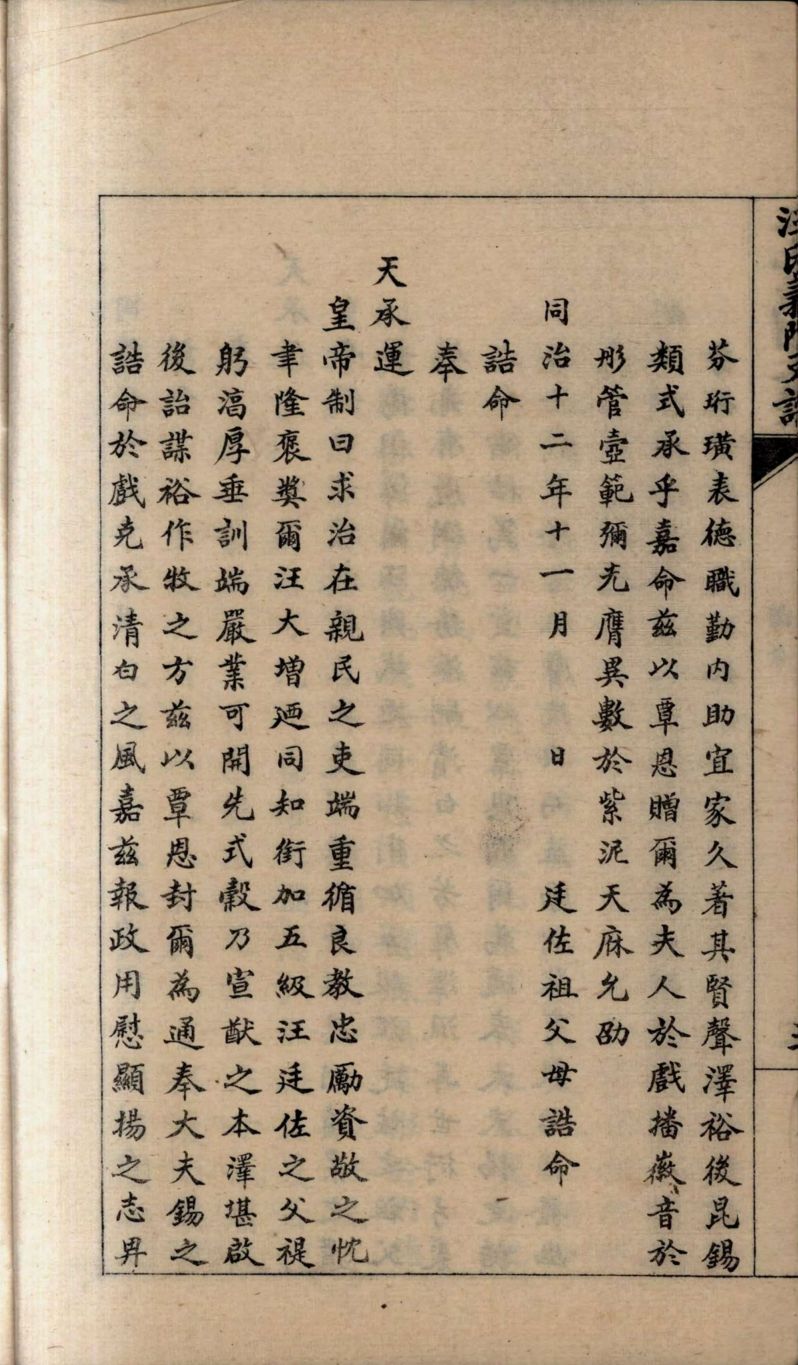 芬珩璜表德職勤内助宜家久著其賢聲澤裕後昆錫
類式承乎嘉命茲以覃恩贈爾為夫人於戲播徽音於
彤管壼範彌光膺異數於紫泥天庥允劭
同治十二年十一月 日 廷佐祖父母誥命
誥命
奉
天承運
皇帝制曰求治在親民之吏端重循良教忠勵資敬之忱
聿隆褒奬爾汪大增廼同知銜加五級汪廷佐之父禔
躬湻厚垂訓端嚴業可開先式穀乃宣猷之本澤堪啟
後詒謀裕作牧之方茲以覃恩封爾為通奉大夫錫之
誥命於戲克承清白之風嘉茲報政用慰顯揚之志畀